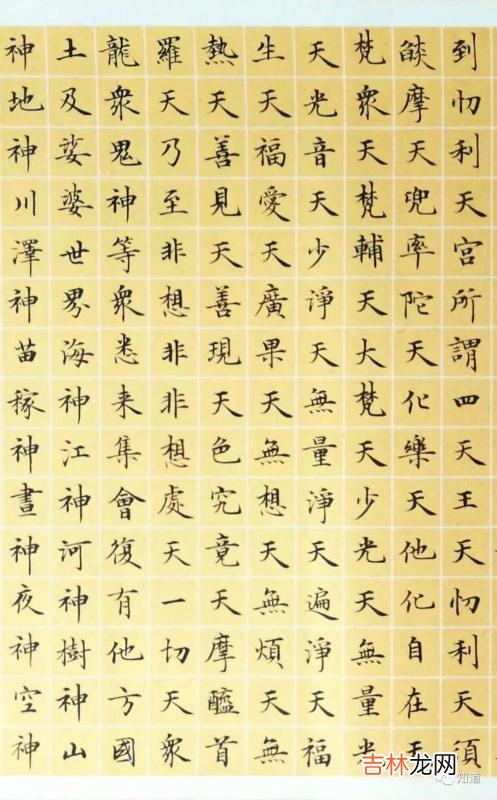 到忉利天宮所謂四天王天忉利天須
燄摩天兜率陀天化樂天他化自在天
梵衆天梵輔天大梵天少光天無量光
天光音天少淨天無量淨天遍淨天福
生天福愛天廣果天無想天無煩天無
熱天善見天善現天色究竟天摩醯首
羅天乃至非想非非想處天一切天衆
龍衆鬼神等衆悉来集會復有他方國
土及娑婆世界海神江神河神樹神山
神地神川澤神苗稼神晝神夜神空神
知道
吉林龙网